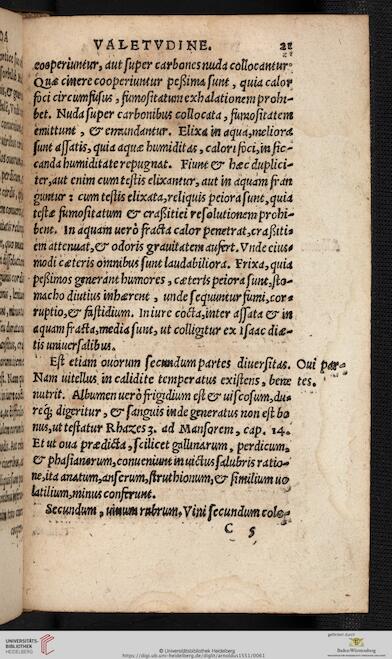 VALETVDINE. 21
cooperiuntur, aut super carbones nuda collocantur.
Quæ cinere cooperiuntur peßima sunt, quia calor
foci circumfusus, fumositatum exhalationem prohi-
bet. Nuda super carbonibus collocata, fumositatem
emittunt, & emundantur. Elixa in aqua, meliora
sunt assatis, quia aquæ humiditas, calori foci, in sic-
canda humiditate repugnat. Fiunt & hæc duplici-
ter, aut enim cum testis elixantur, aut in aquam fran
guntur: cum testis elixata, reliquis peiora sunt, quia
testæ fumositatum & craßitiei resolutionem prohi-
bent. In aquam uerò fracta calor penetrat, craßiti-
em attenuat, & odoris grauitatem aufert. Vnde eius-
modi cæteris omnibus sunt laudabiliora. Frixa, quia
peßimos generant humores, cæteris peiora sunt, sto-
macho diutius inhærent, unde sequuntur fumi, cor-
ruptio, & fastidium. In iure cocta, inter assata & in
aquam fracta, media sunt, ut colligitur ex Isaac diæ-
tis uniuersalibus.
Est etiam ouorum secundum partes diuersitas. Oui par-
Nam uitellus, in caliditate temperatus existens, bene tes.
nutrit. Albumen uerò frigidium est & uiscosum, du-
req; digeritur, & sanguis inde generatus non est bo
nus, ut testatur Rhazes 3. ad Mansorem, cap. 14.
Et ut oua prædicta, scilicet gallinarum, perdicum,
& phasianorum, conueniunt in uictus salubris ratio-
ne, ita anatum, anserum, struthionum, & similium uo
latilium, minus conferunt.
Secundum, uinum rubrum, Vini secundum colo-
C 5
UNIVERSITÄTS-
BIBLIOTHEK
HEIDELBERG
© Universitätsbibliothek Heidelberg
https://digi.ub.uni-heidelberg.de/diglit/arnoldus1551/0061
gefördert durch
Baden-Württemberg